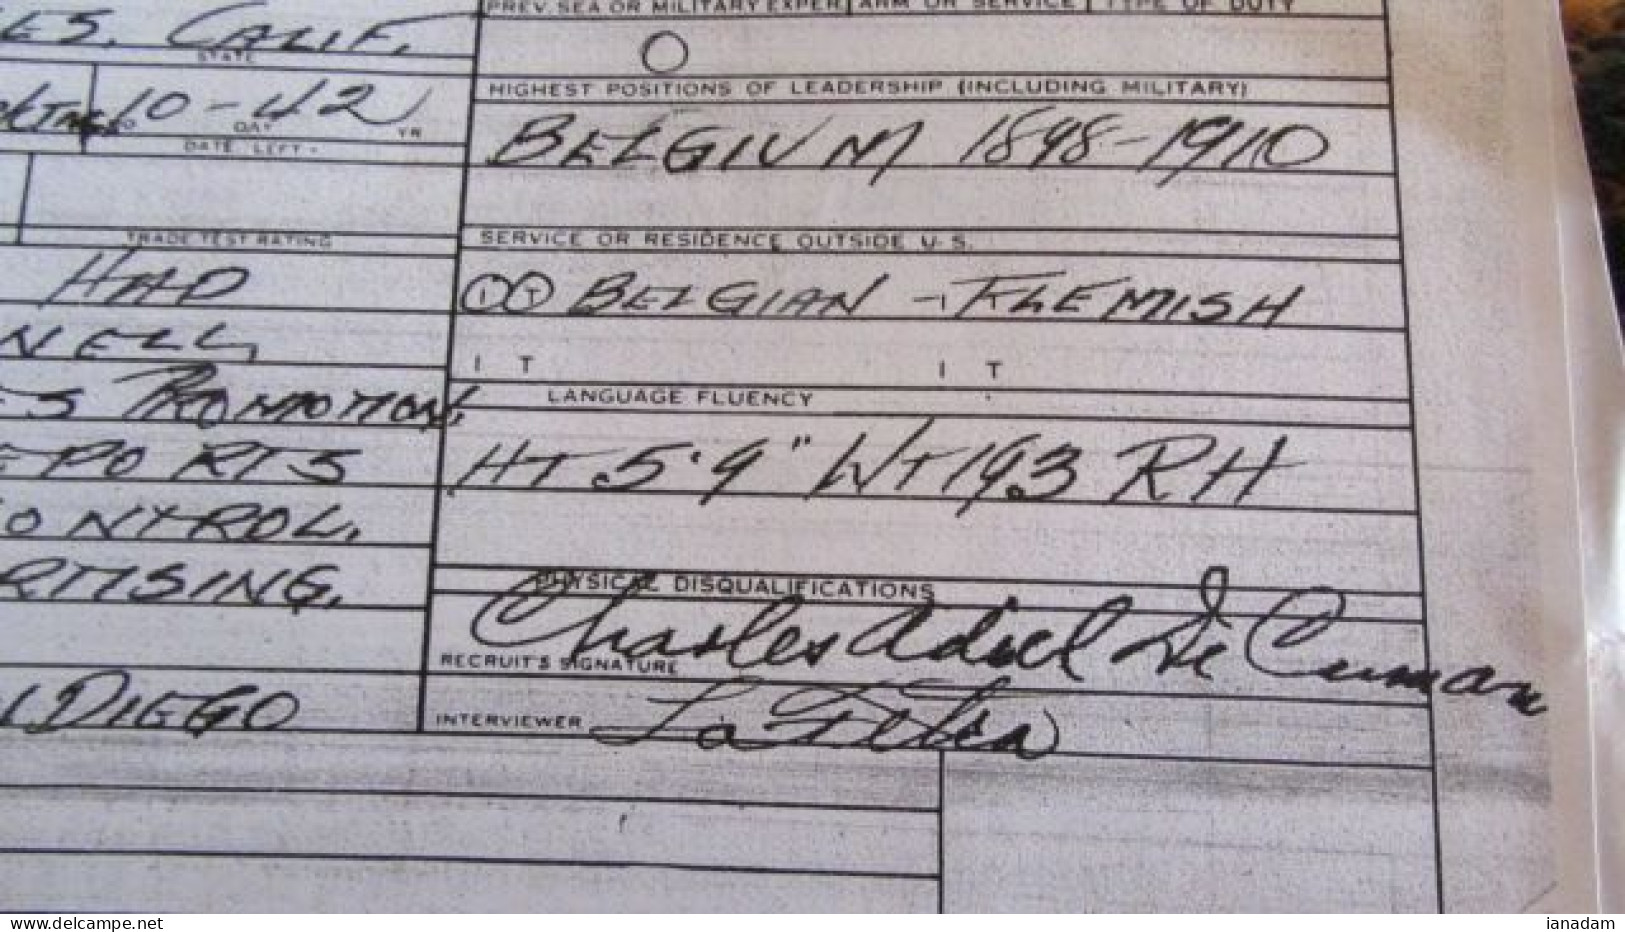 PREV. SEA OR MILITARY EXPER ARM OR SERVICE TYPE OF DUTY
ES, CALIF.
STATE
O
HIGHEST POSITIONS OF LEADERSHIP (INCLUDING MILITARY)
10-42
DAY YR
DATE LEFT
BELGIUM 1898-1910
TRADE TEST RATING
SERVICE OR RESIDENCE OUTSIDE U. S.
HAD
I T BELGIAN - I T FLEMISH
NELL
I T I T
LANGUAGE FLUENCY
ES PROMOTION,
EPORTS
HT 5'9" WT 193 RH
ONTROL,
PHYSICAL DISQUALIFICATIONS
RTISING,
Charles Adiel De Cuman
RECRUIT'S SIGNATURE
DIEGO
INTERVIEWER
delcampe.net
ianadam